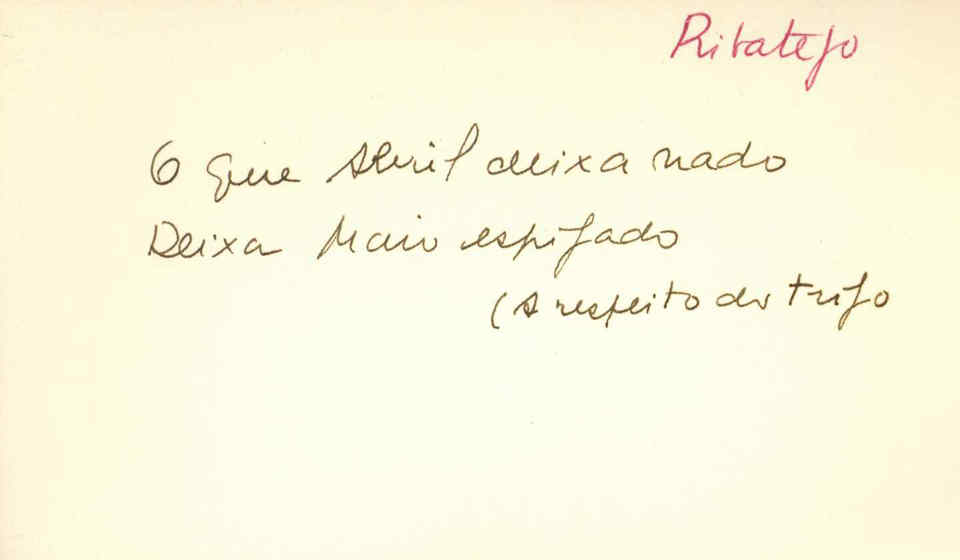 Ribatejo
O que Abril deixa nado
Deixa Maio espigado
(A respeito do trigo